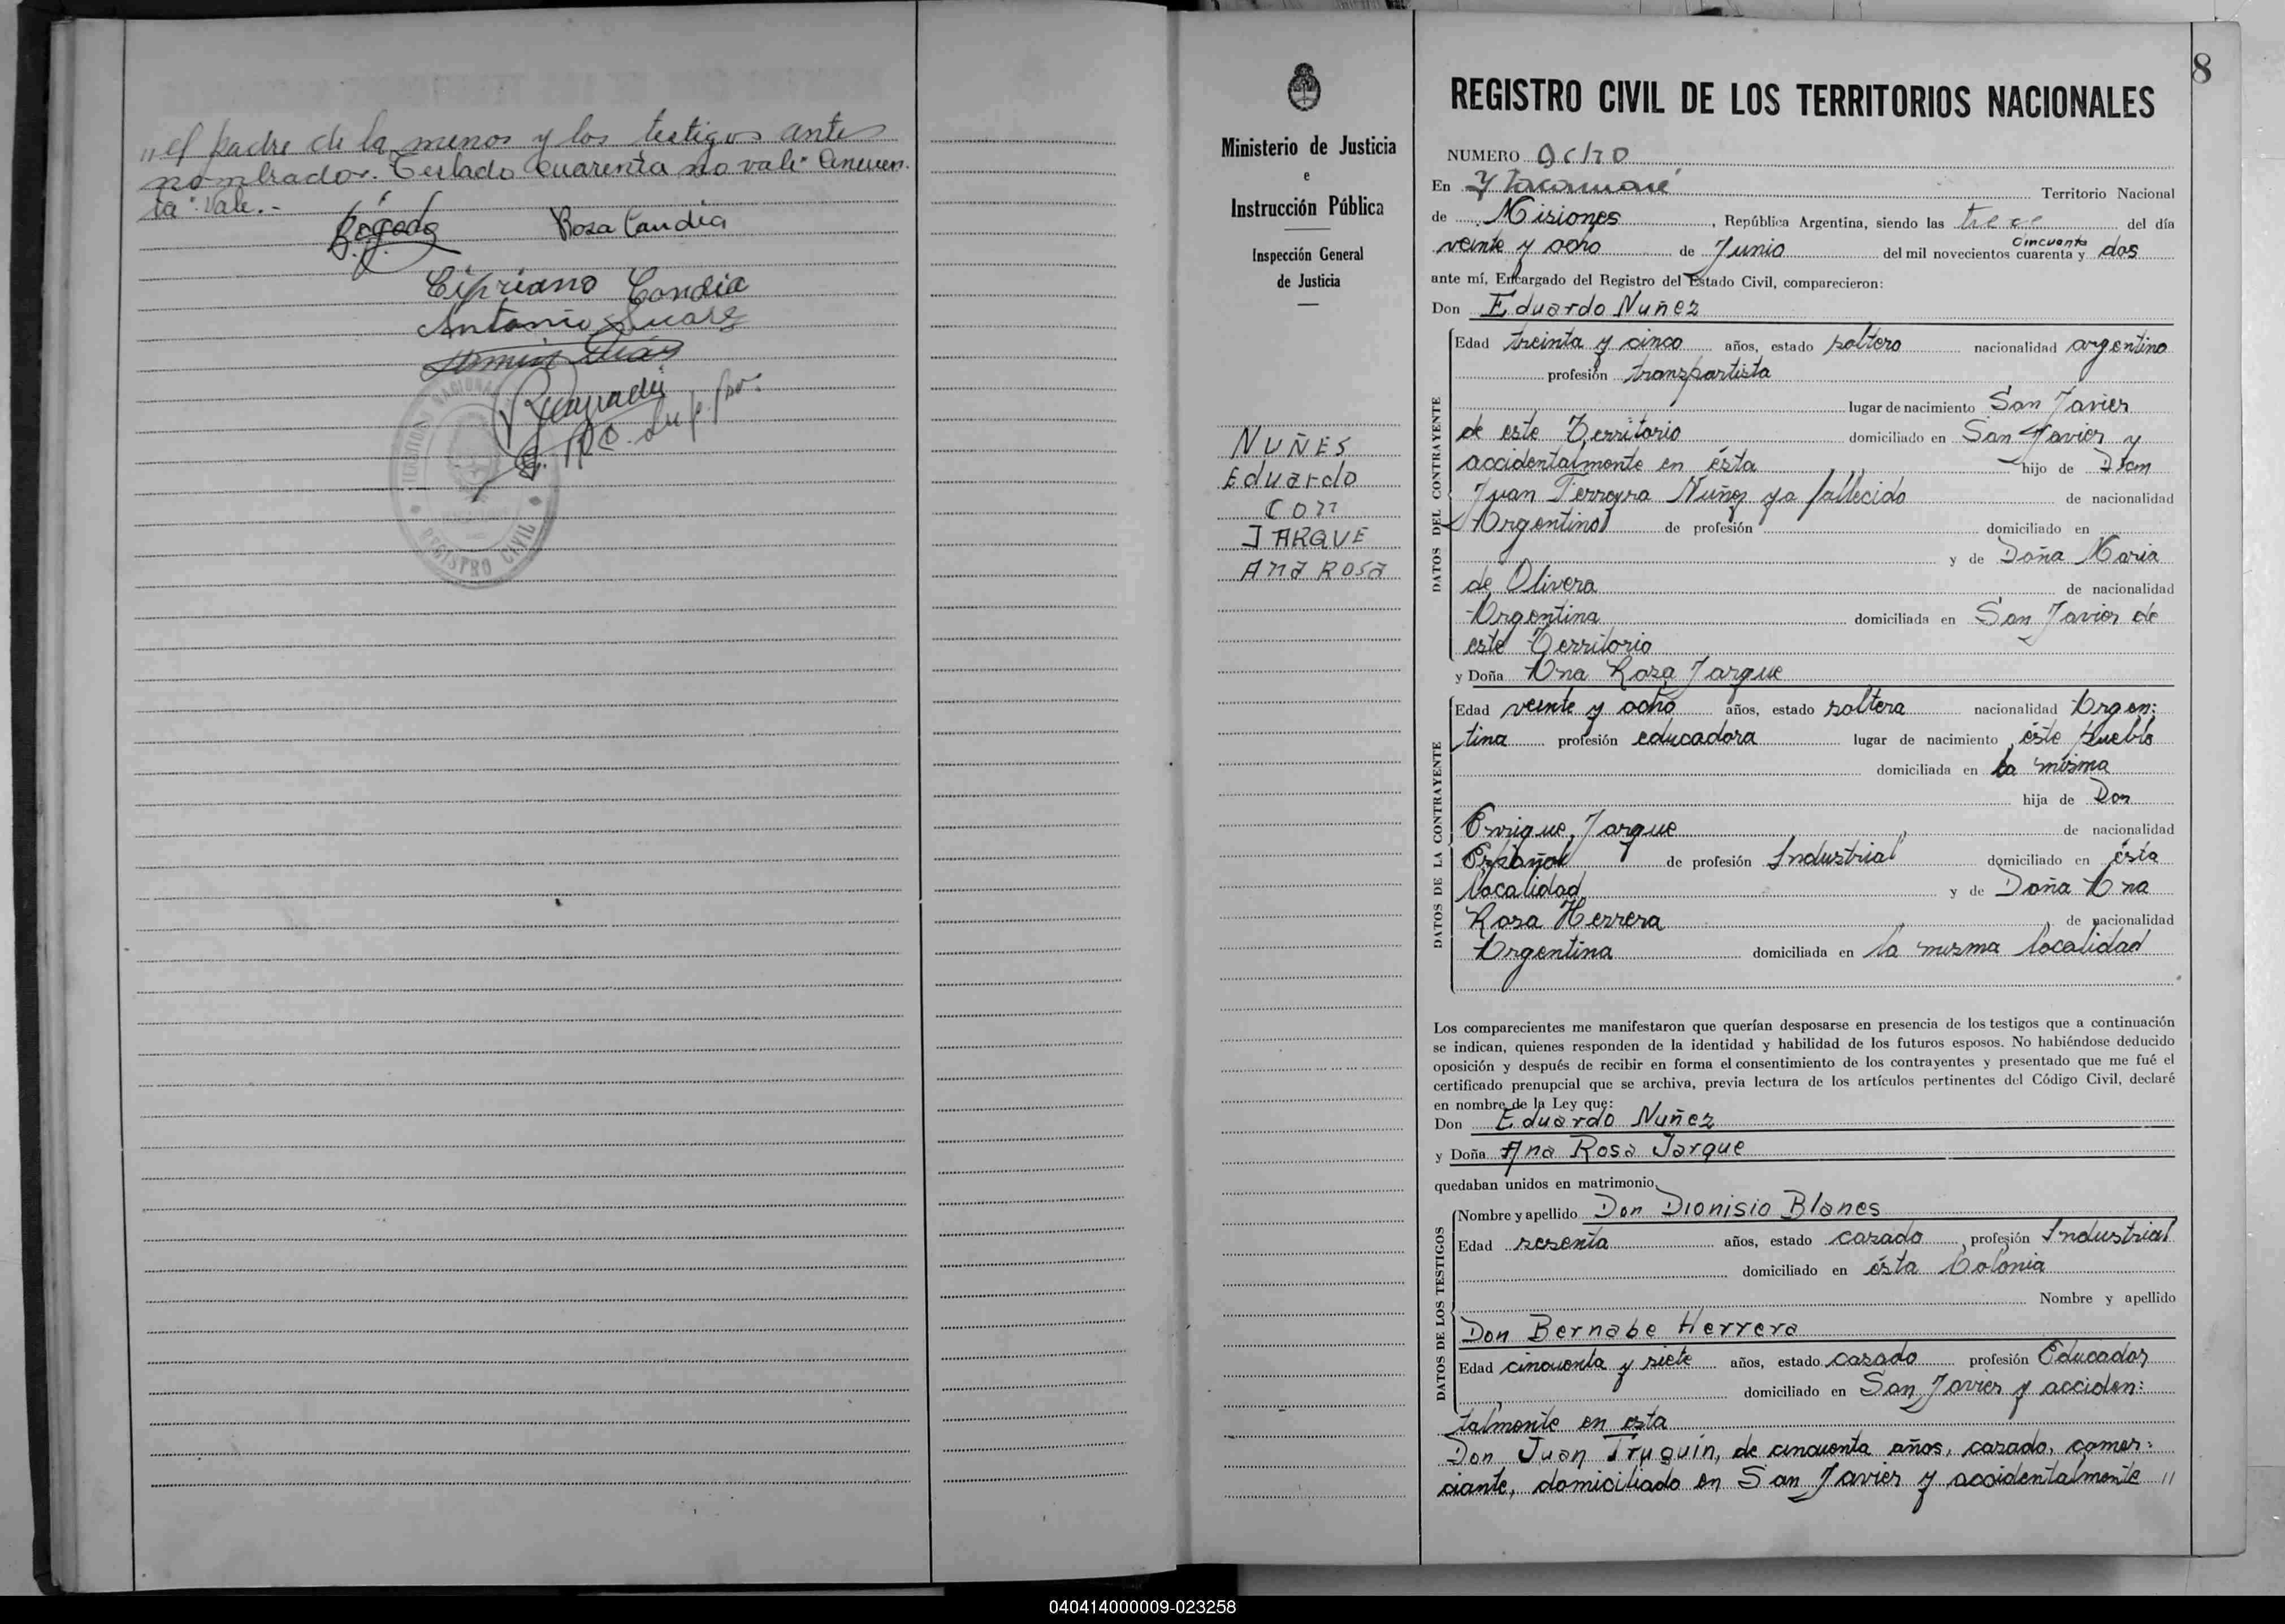 "el padre de la menor y los testigos antes
nombrados. Testado cuarenta no vale" Cincuen.
ta" Vale.-
Rosa Candia
Cipriano Candia
Antonio Suarez
TERRITORIO NACIONAL
REGISTRO CIVIL
Ministerio de Justicia
e
Instrucción Pública
Inspección General
de Justicia
NUÑES
Eduardo
con
JARQUE
Ana Rosa
8
REGISTRO CIVIL DE LOS TERRITORIOS NACIONALES
NUMERO Ocho
En Ytacaruaré Territorio Nacional
de Misiones, República Argentina, siendo las trece del día
veinte y ocho de Junio del mil novecientos cuarenta y cincuenta dos
ante mí, Encargado del Registro del Estado Civil, comparecieron:
Don Eduardo Nuñez
DATOS DEL CONTRAYENTE
Edad treinta y cinco años, estado soltero nacionalidad argentino
profesión transpartista
lugar de nacimiento San Javier
de este Territorio domiciliado en San Javier y
accidentalmente en ésta hijo de Don
Juan Ferreyra Nuñez ya fallecido de nacionalidad
Argentino de profesión domiciliado en
y de Doña Maria
de Olivera de nacionalidad
Argentina domiciliada en San Javier de
este Territorio
y Doña Ana Rosa Jarque
DATOS DE LA CONTRAYENTE
Edad veinte y ocho años, estado soltera nacionalidad Argen:
tina profesión educadora lugar de nacimiento éste pueblo
domiciliada en la misma
hija de Don
Enrique Jarque de nacionalidad
Español de profesión Industrial domiciliado en ésta
localidad y de Doña Ana
Rosa Herrera de nacionalidad
Argentina domiciliada en la misma localidad
Los comparecientes me manifestaron que querían desposarse en presencia de los testigos que a continuación
se indican, quienes responden de la identidad y habilidad de los futuros esposos. No habiéndose deducido
oposición y después de recibir en forma el consentimiento de los contrayentes y presentado que me fué el
certificado prenupcial que se archiva, previa lectura de los artículos pertinentes del Código Civil, declaré
en nombre de la Ley que:
Don Eduardo Nuñez
y Doña Ana Rosa Jarque
quedaban unidos en matrimonio.
DATOS DE LOS TESTIGOS
Nombre y apellido Don Dionisio Blanes
Edad sesenta años, estado casado profesión Industrial
domiciliado en ésta Colonia
Nombre y apellido
Don Bernabe Herrera
Edad cincuenta y siete años, estado casado profesión Educador
domiciliado en San Javier y acciden:
talmente en esta
Don Juan Truguin, de cincuenta años, casado, comer:
ciante, domiciliado en San Javier y accidentalmente "
040414000009-023258